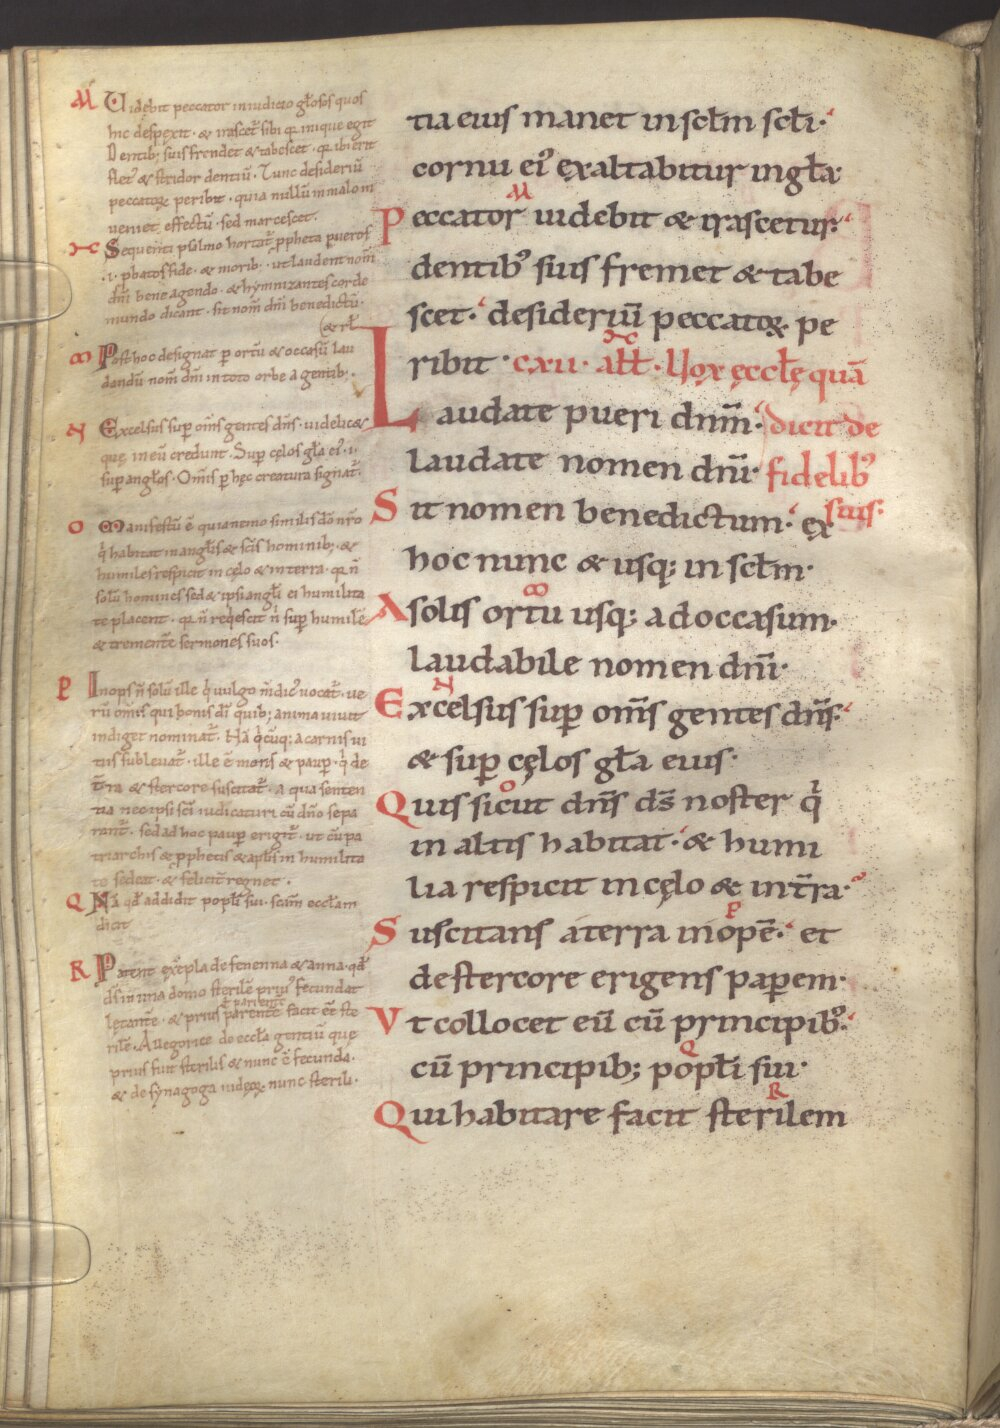 M Uidebit peccator in iudicio gl̄osos quos
hic despexit · & irascet̄ sibi q̄ inique egit
Dentib; suis frendet & tabescet · q̄ ibi erit
flet᾿ & stridor dentiū · Tunc desideriū
peccatoꝝ peribit · quia nullū in malo in
ueniet effectū · sed marcescet ·
Sequenti psalmo hortat̄ ꝓpheta pueros
·i· ꝓbatos fide · & morib · ut laudent nom̄
dn̄i bene agendo · & hymnizantes corde
mundo dicant · sit nom̄ dn̄i benedictū ·
(& rł
ꝏ Post hoc designat ꝑ ortū & occasū lau
dandū nom̄ dn̄i in toto orbe a gentib; ·
N Excelsus suꝑ om̄s gentes dn̄s · uidelic&
quę in eū credunt · Suꝑ cęlos gła ei᾿ ·i·
suꝑ angłos · Om̄is ꝑ hęc creatura signat̄ ·
O Manifestū ē quia nemo similis dō nr̄o
q̍ habitat in angłis & scīs hominib; · &
humiles respicit in cęlo & in terra · q̄ n̄
solū homines sed & ipsi angłi ei humilita
te placent · q̄ n̄ reqescit n̄ suꝑ humilē
& trementē sermones suos ·
P Inops n̄ solū ille q̍ uulgo m̄dic᾿ uocat̄ · ue
rū om̄es qui bonis dī quib; anima uiuit
indiget nominat̄ · Hā q̍cūq; a carnis ui
tiis subleuat̄ · ille ē inops & pauꝑ · q̍ de
t̄ra & stercore suscitat̄ · a qua senten
tia nec ipsi scī iudicaturi cū dn̄o sepa
rant̄ · sed ad hoc pauꝑ erigit̄ · ut cū pa
triarchis & ꝓphetis & apłis in humilita
te sedeat · & felicit̄ regnet ·
Q Nā qđ addidit popłi sui · scām ecclām
dicit
R Patent exēpla de fenenna & anna · qđ
dī in una domo sterilē prius fecundat
ł parientē
lęctantē · & prius parentē facit eē ste
rilē · Allegorice de eccła gentiū que
prius fuit sterilis & nunc ē fecunda ·
& de synagoga iudęoꝝ nunc sterili ·
tia eius manet in scłm scłi ·
cornu ei᾿ exaltabitur in gła:
M
Peccator uidebit & irascetur ·
dentib᾿ suis fremet & tabe
scet · desideriū peccatoꝝ pe
ribit · cxii · ałł · Uox ęccłę quā
Laudate pueri dnm̄ · dicit de
laudate nomen dn̄i · fidelib᾿
Sit nomen benedictum · ex suis:
hoc nunc & usq; in scłm ·
ꝏ
A solis ortu usq; ad occasum ·
laudabile nomen dn̄i ·
N
Excelsus suꝑ om̄s gentes dn̄s ·
& suꝑ cęlos gła eius ·
O
Quis sicut dn̄s ds̄ noster q̍
in altis habitat · & humi
lia respicit in cęlo & in t̄ra ·
P
Suscitans a terra inopē · et
de stercore erigens pauꝑem ·
Vt collocet eū cū principib᾿ ·
Q
cū principib; popłi sui ·
R
Qui habitare facit sterilem